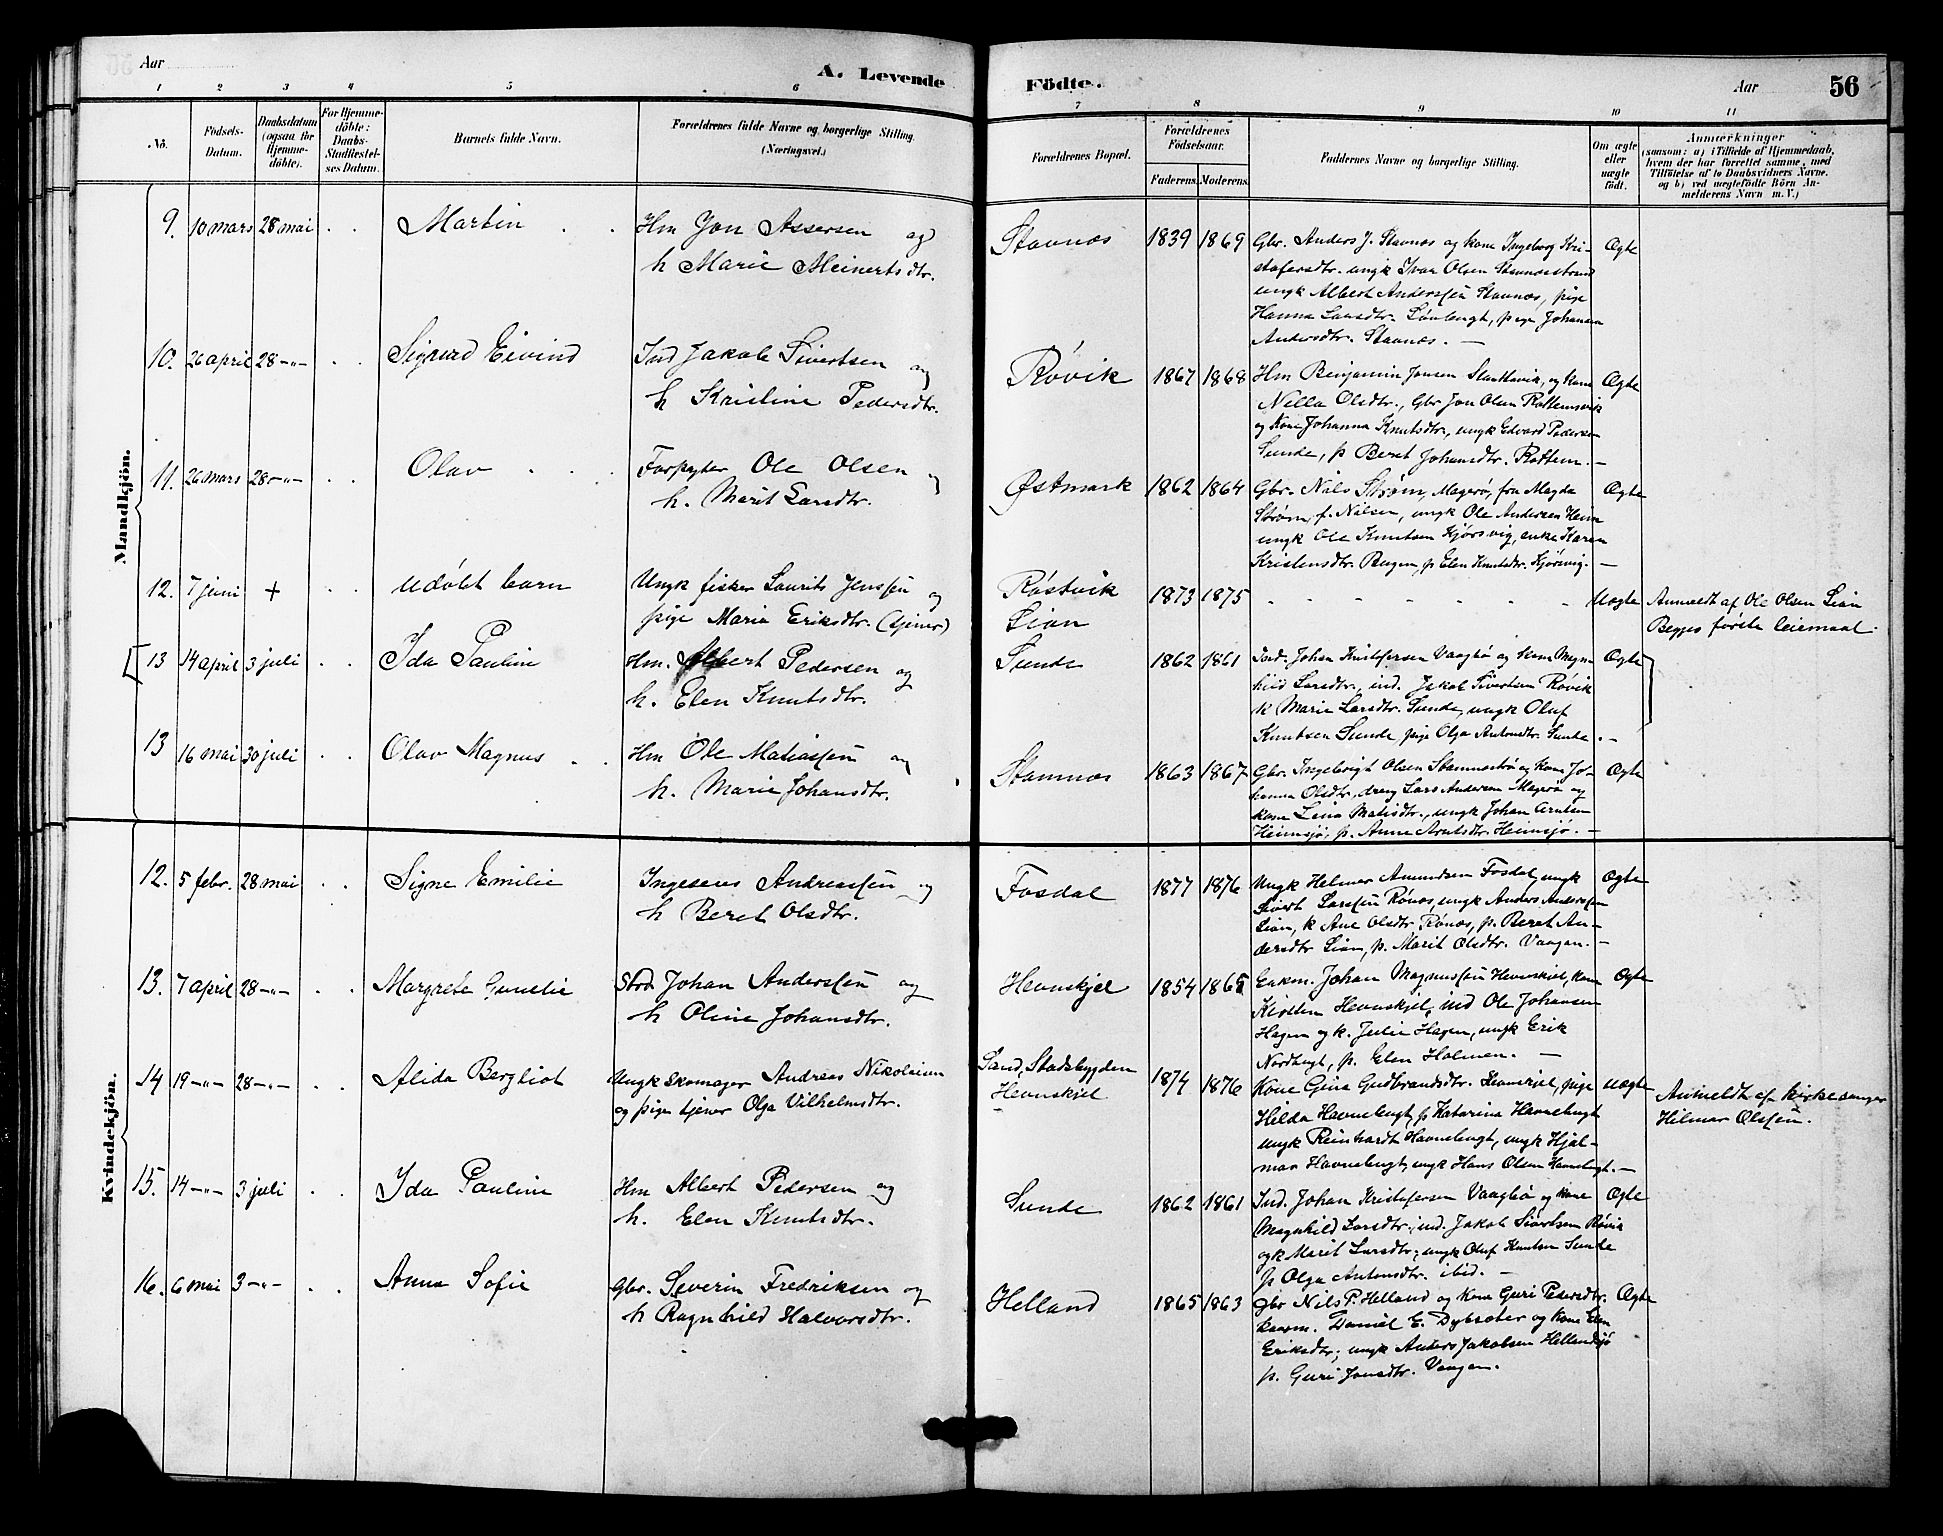 Aar
A. Levende
Fødte.
Aar
56
1 2 3 4 5 6 7 8 9 10 11
No.
Fødsels-
Datum.
Daabsdatum
(ogsaa for
Hjemme-
døbte).
For Hjemme-
døbte:
Daabs-
Stadfæstel-
ses Datum.
Barnets fulde Navn.
Forældrenes fulde Navne og borgerlige Stilling.
(Næringsvei.)
Forældrenes Bopæl.
Forældrenes
Fødselsaar.
Faderens.
Moderens.
Faddernes Navne og borgerlige Stilling.
Om ægte
eller
uægte
født.
Anmærkninger
(saasom: a) i Tilfælde af Hjemmedaab,
hvem der har forrettet samme, med
Tilføielse af to Daabsvidners Navne,
og b) ved uægtefødte Børn An-
melderens Navn m. V.)
Mandkjøn.
9. 10 mars 28 mai Martin
Hm Jon Assersen og
h Marie Meinertsdtr.
Stavnæs 1839 1869
Gbr. Anders J. Stavnæs og kone Ingeborg Kri-
stofersdtr. ungk Ivar Olsen
ungk Albert Anderssen Stavnæs, pige
Hanna Larsdtr. pige Johanna
Andersdtr. Stavnæs. —
Ægte
10. 26 april 28 -"- Sigurd Eivind
Ind Jakob Sivertsen og
h Kristine Pedersdtr.
Røvik 1867 1868
Hm Benjamin Jonsen og kone
Nella Olsdtr., Gbr Jon Olsen Rottemsvik
og kone Johanna Knutsdtr., ungk Edvard Pedersen
Sunde, p Beret Johansdtr. Rottem. —
Ægte
11. 26 mars 28 -"- Olav
Forpagter Ole Olsen og
h. Marit Larsdtr.
Østmark 1862 1864
Gbr. Nils Strøm, Magerø, fru Magda
Strøm, f. Nilsen, ungk Ole Andersen Heim
ungk Ole Knutsen Kjørsvig, enke Karen
Kristensdtr. Bugen, p Elen Knutsdtr. Kjørsvig. —
Ægte
12. 7 juni + udøbt barn
Ungk fisker Laurits Jenssen og
pige Maria Eriksdtr. (tjener)
Røstvik
Lian
1873 1875
Uægte
Anmeldt af Ole Olsen Lian
Begges første leiermaal.
[13 14 april 3 juli Ida Pauline
Hm. Albert Pedersen og
h. Elen Knutsdtr.
Sunde 1862 1861
Ind. Johan Kristofersen Vaagbø og kone Magn-
hild Larsdtr., ind. Jakob Sivertsen Røvik
k Marie Larsdtr. Sunde, ungk Oluf
Knutsen Sunde, pige Olga Antonsdtr. Sunde. —
Ægte ]
13 16 mai 30 juli Olav Magnus
Hm Ole Matiassen og
h. Marie Johansdtr.
Stamnæs 1863 1867
Gbr. Ingebrigt Olsen Stamnæstrø og kone Jo-
hanna Olsdtr., dreng Lars Andersen Magerø og
kone Lina Matisdtr., ungk Johan Arntsen
Heimsjø, p. Anne Arntsdtr. Heimsjø. —
Ægte
Kvindekjøn.
12. 5 febr. 28 mai Signe Emilie
Ingesens Andreassen og
h Beret Olsdtr.
Fosdal 1877 1876
Ungk Helmer Amundsen Fosdal, ungk
Sivert Larssen Rønæs, ungk Anders Anderssen
Lian, k Ane Olsdtr. Rønæs, p. Beret An-
dersdtr Lian, p. Marit Olsdtr. Vaagen. —
Ægte
13. 7 april 28 -"- Margrete Gunelie
Strd Johan Anderssen og
h Oline Johansdtr.
Hevnskjel 1854 1865
Enkm. Johan Magnussen Hevnskjel, kone
Kirsten Hevnskjel, ind Ole Johansen
Hagen og k. Julie Hagen, ungk Erik
Nordbugt, p. Elen Holmen. —
Ægte
14 19 -"- 28 -"- Alida Bergliot
Ungk Skomager Andreas Nikolaisen
og pige tjener Olga Vilhelmsdtr.
Sand, Stadsbygden
Hevnskjel
1874 1876
Kone Gina Gudbrandsdtr. Hevnskjel, pige
Hilda Havnebugt, p Katarina Havnebugt
ungk Reinhardt Havnebugt, ungk Hjal-
mar Havnebugt, ungk Hans Olsen Havnebugt. —
Uægte
Anmeldt af kirkesanger
Hilmar Olssen.
15. 14 -"- 3 juli Ida Pauline
Hm Albert Pedersen og
h. Elen Knutsdtr.
Sunde 1862 1861
Ind. Johan Kristofersen Vaagbø og kone
Magnhild Larsdtr., ind. Jakob Sivertsen Røvik
og k Marit Larsdtr; ungk Oluf Knutsen Sunde
p Olga Antonsdtr. ibid. —
Ægte
16. 6 mai 3 -"- Anna Sofie
Gbr. Severin Fredriksen og
h Ragnhild Halvorsdtr.
Helland 1865 1863
Gbr Nils P. Helland og kone Guri Pedersdtr.
kaarm. Daniel E. Dybsæter og kone Elen
Eriksdtr; ungk Anders Jakobsen Hellandsjø
p. Guri Jonsdtr. Vaagan.
Ægte